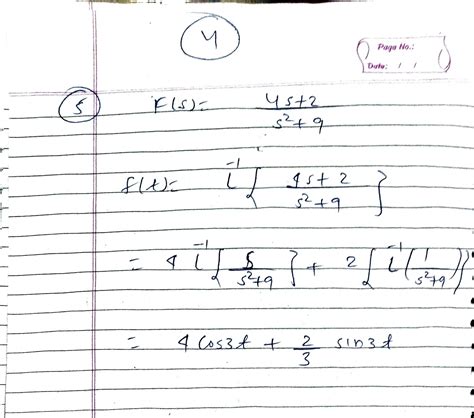 4
Page No.:
Date: / /
5 F(s) = (4s+2)/(s²+9)
f(t) = L⁻¹{(4s+2)/(s²+9)}
= 4 L⁻¹{s/(s²+9)} + 2[L⁻¹(1/(s²+9))]
= 4 cos3t + 2/3 sin3t